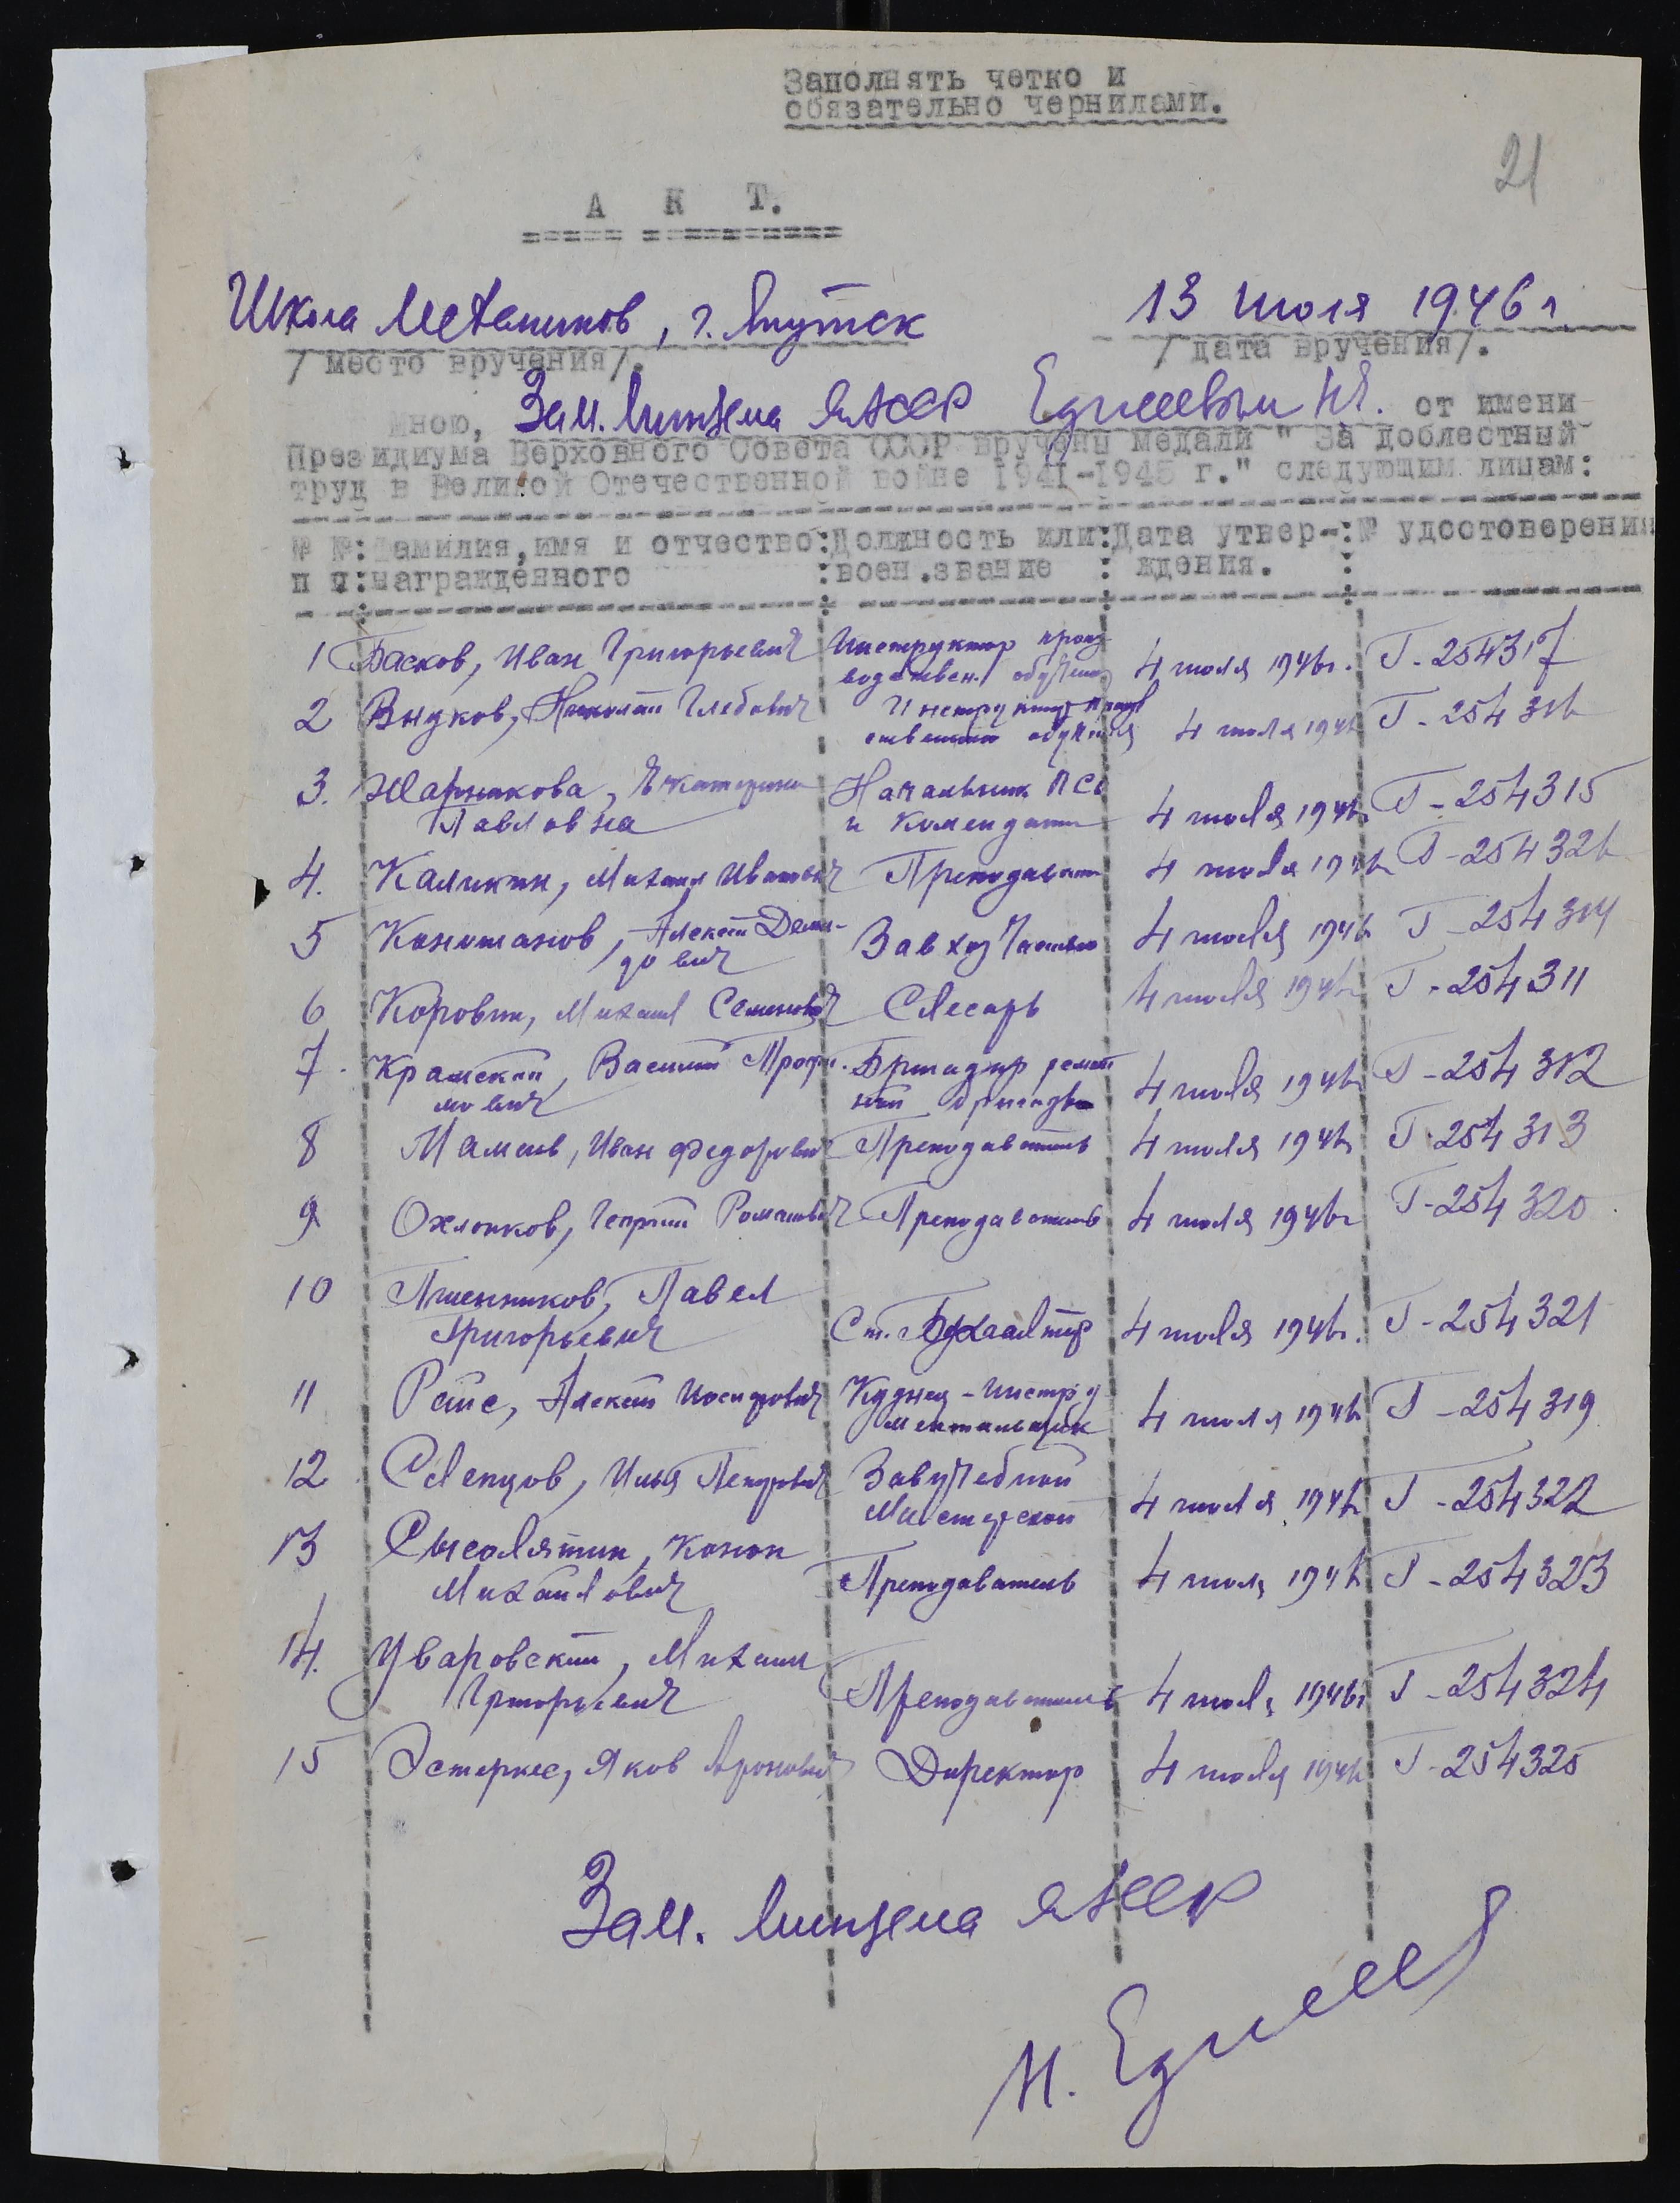 Заполнять четко и
обязательно чернилами.
21
А К Т.
Школа Механиков, г. Якутск
13 июля 1946 г.
/ место вручения/.
/ дата вручения/.
Мною, Зам. Минзема ЯАССР от имени
Президиума Верховного Совета СССР вручены медали " За доблестный
труд в Великой Отечественной войне 1941-1945 г." следующим лицам:
№ №:Фамилия,имя и отчество:Должность или:Дата утвер-:№ удостоверения
п п:награжденного :воен.звание : ждения. :
1 Басков, Иван Григорьевич Инструктор произ-
водствен. обучения 4 июля 1946г. Т-254317
2 Внуков, Николай Глебович Инструктор произв
ственного обучения 4 июля 1946 Т-254316
3. Жарникова, Екатерина Начальник
Павловна и Комендант 4 июля 1946 Т-254315
4. Каликин, Михаил Иванович Преподаватель 4 июля 1946 Т-254326
5 Конистанов, Алексей Деми-
дович Завхоз частью 4 июля 1946 Т-254314
6 Коровин, Михаил Семенович Слесарь 4 июля 1946 Т-254311
7. Крамской, Василий Трофи- Бригадир ремонт
мович ной бригады 4 июля 1946 Т-254312
8 Мамаев, Иван Федорович Преподаватель 4 июля 1946 Т-254313
9 Охлопков, Георгий Романович Преподаватель 4 июля 1946г Т-254320
10 Пшенников, Павел
Григорьевич Ст. Бухгалтер 4 июля 1946г. Т-254321
11 Рейс, Алексей Иосифович Кузнец-инстру
ментальщик 4 июля 1946 Т-254319
12 Слепцов, Илья Петрович Зав учебной
Мастерской 4 июля 1946 Т-254322
13 Сысолятин, Конон
Михайлович Преподаватель 4 июля 1946 Т-254323
14. Уваровский, Михаил
Григорьевич Преподаватель 4 июля 1946г Т-254324
15 Эстеркес, Яков Аронович Директор 4 июля 1946 Т-254325
Зам. Минзема ЯАССР